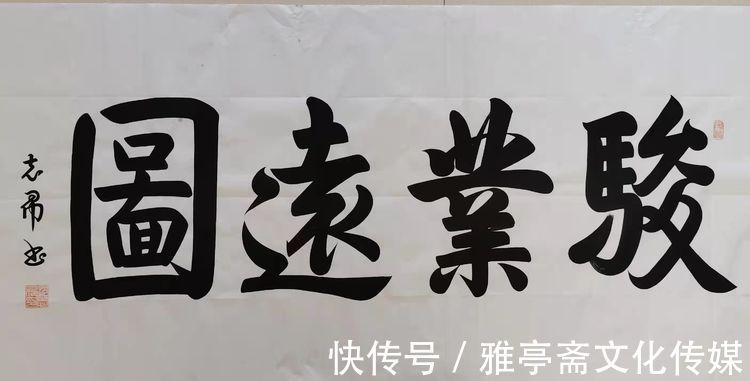 駿業遠圖
志 书
快传号 / 雅亭斋文化传媒